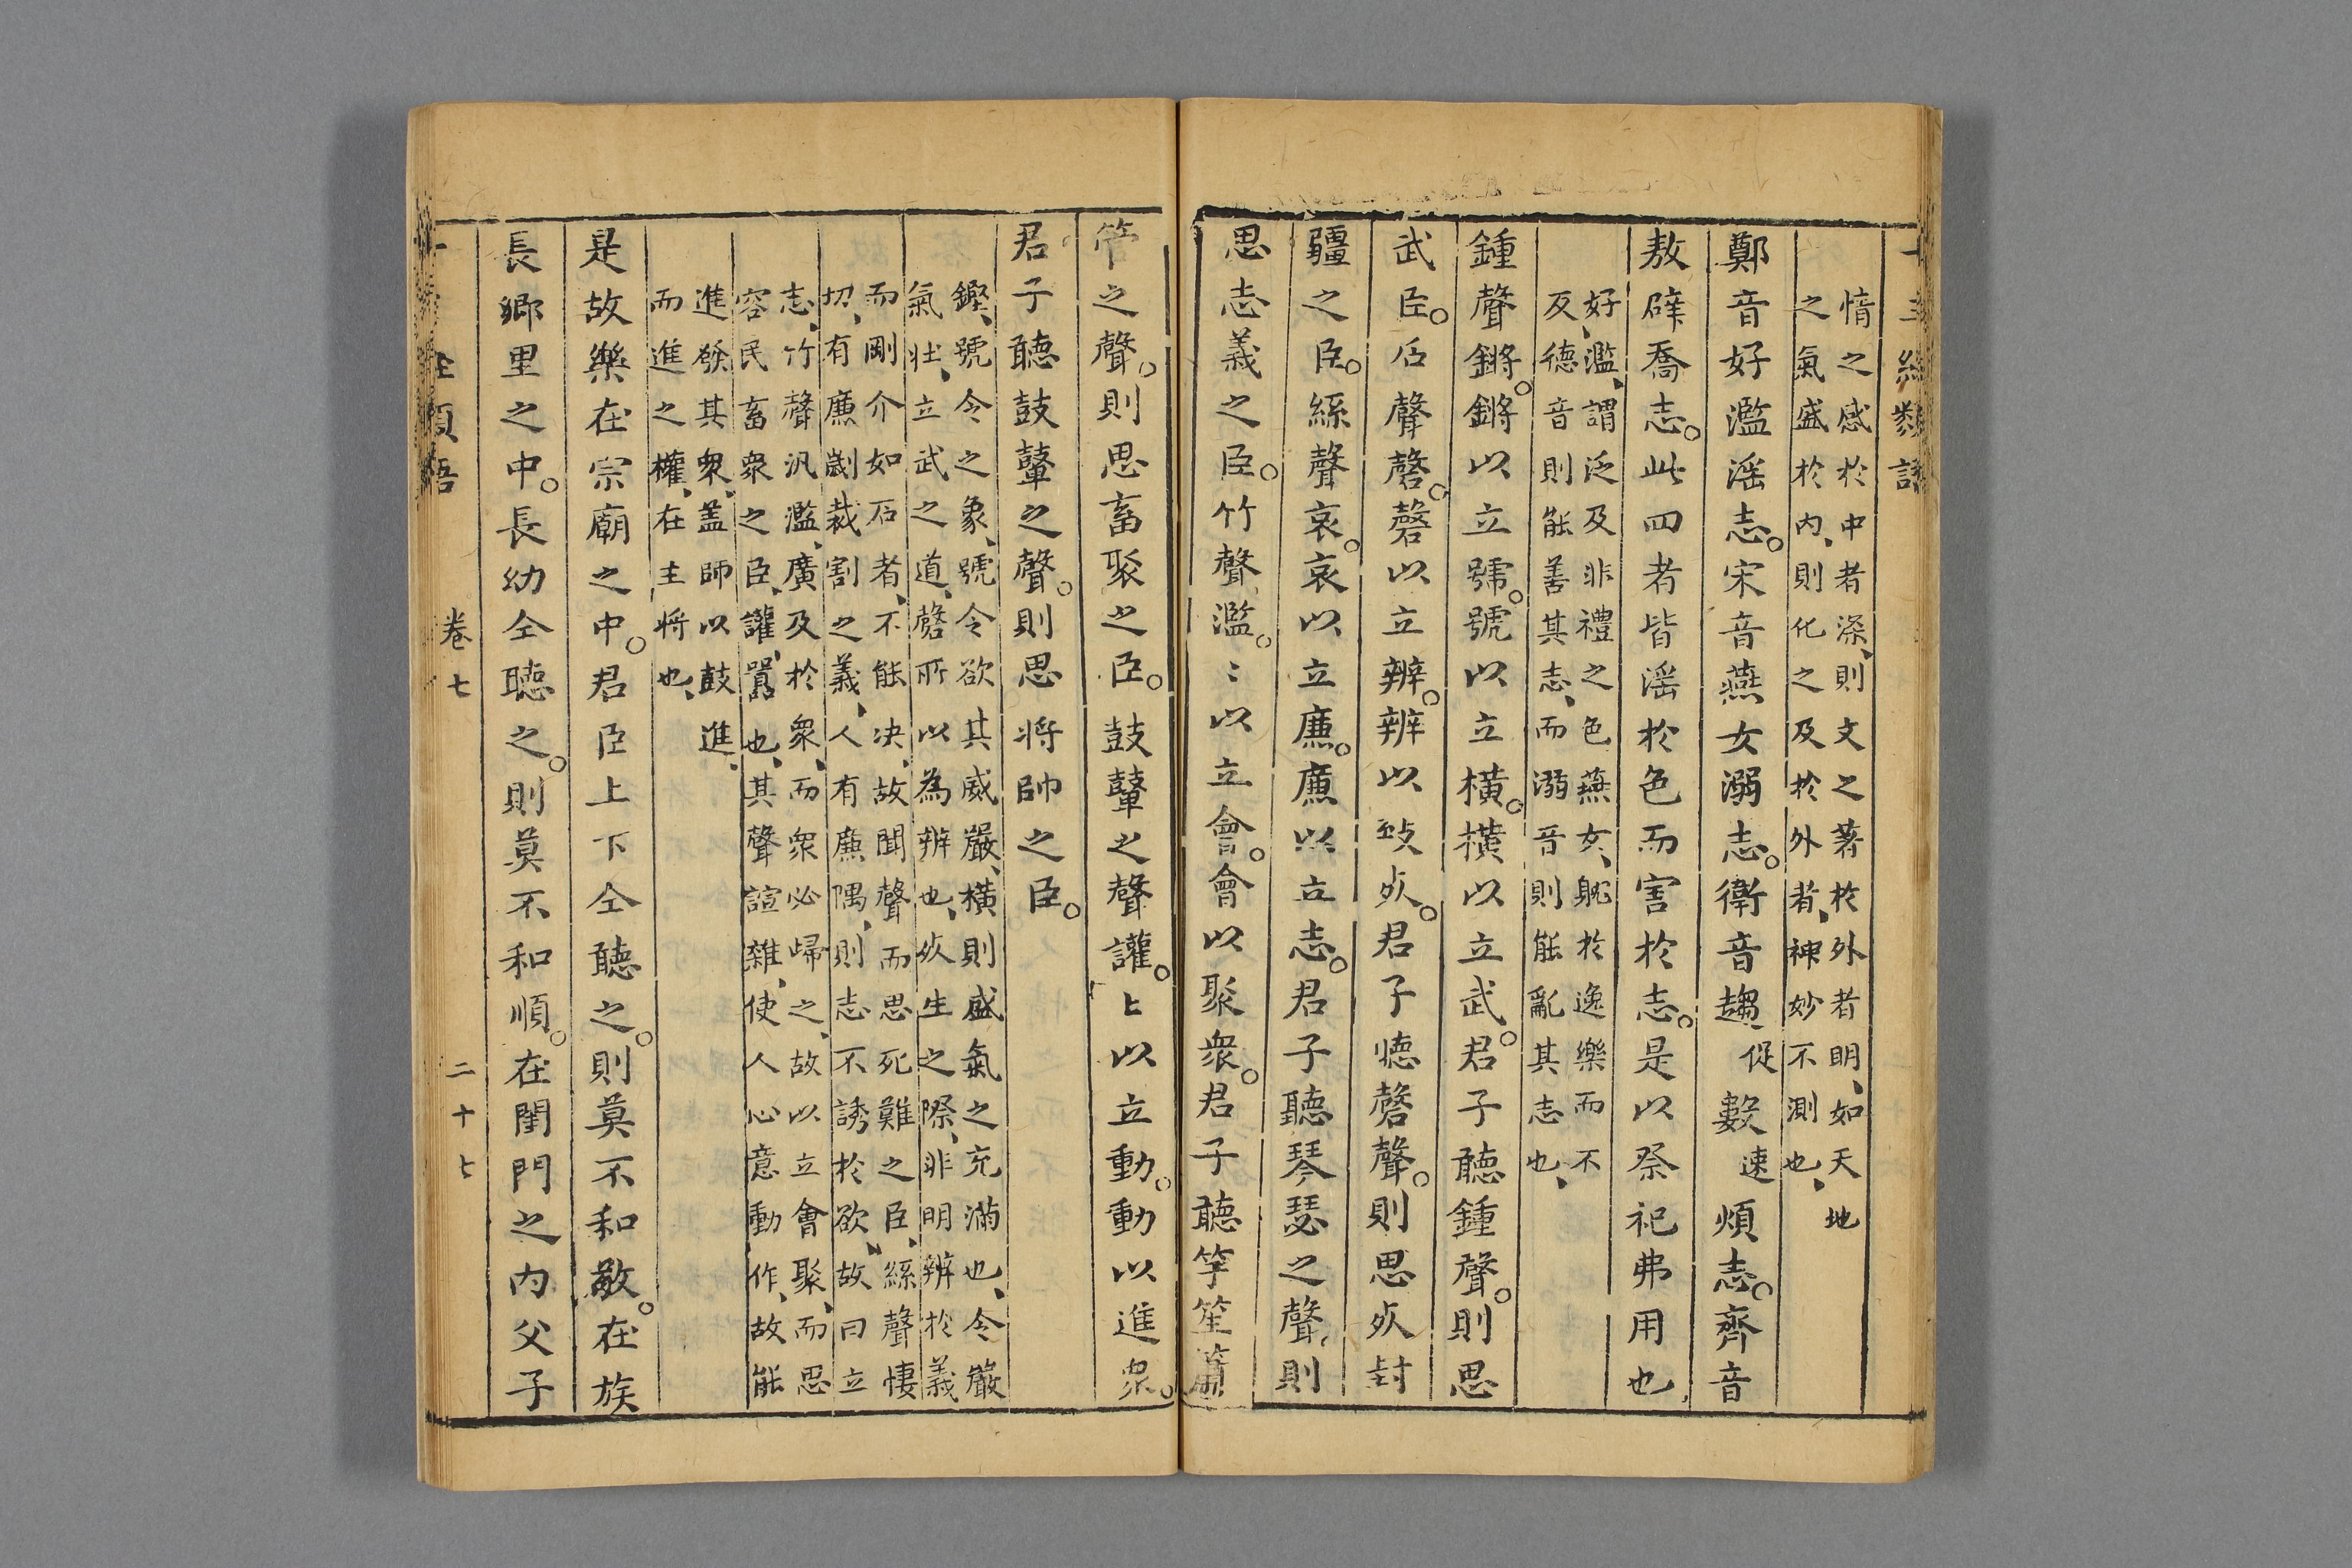 情之感於中者深、則文之著於外者明、如天地
之氣盛於内、則化之及於外者、神妙不測也、
鄭音好濫滛志。宋音燕女溺志。衛音趨促數速煩志。齊音
敖辟喬志。此四者皆滛於色而害於志。是以祭祀弗用也
好、濫、謂泛及非禮之色、燕女、躭於逸樂而不
反、德音則能善其志、而溺音則能亂其志也、
鍾聲鏘。鏘以立號。號以立横。横以立武。君子聽鍾聲。則思
武臣。石聲磬。磬以立辨。辨以致死。君子聴磬聲。則思死封
疆之臣。絲聲哀。哀以立廉。廉以立志。君子聽琴瑟之聲則
思志義之臣。竹聲濫。〻以立會。會以聚衆。君子聽竽笙簫
管之聲。則思畜聚之臣。鼓鼙之聲讙。〻以立動。動以進衆。
君子聽鼓鼙之聲。則思将帥之臣。
鏗、號令之象、號令欲其威嚴、横則盛氣之充滿也、令嚴
氣壮、立武之道、磬所以為辨也、死生之際、非明辨於義
而剛介如石者、不能决、故聞聲而思死難之臣、絲聲悽
切、有廉劌裁割之義、人有廉隅、則志不誘於欲、故曰立
志、竹聲汎濫、廣及於衆、而衆必歸之、故以立會聚、而思
容民畜衆之臣、讙、囂也、其聲諠雜、使人心意動作、故能
進發其衆、盖師以鼓進、
而進之權、在主将也、
是故樂在宗廟之中。君臣上下仝聽之。則莫不和敬。在族
長鄉里之中。長幼仝聴之。則莫不和順。在閨門之内父子
卷七 二十七